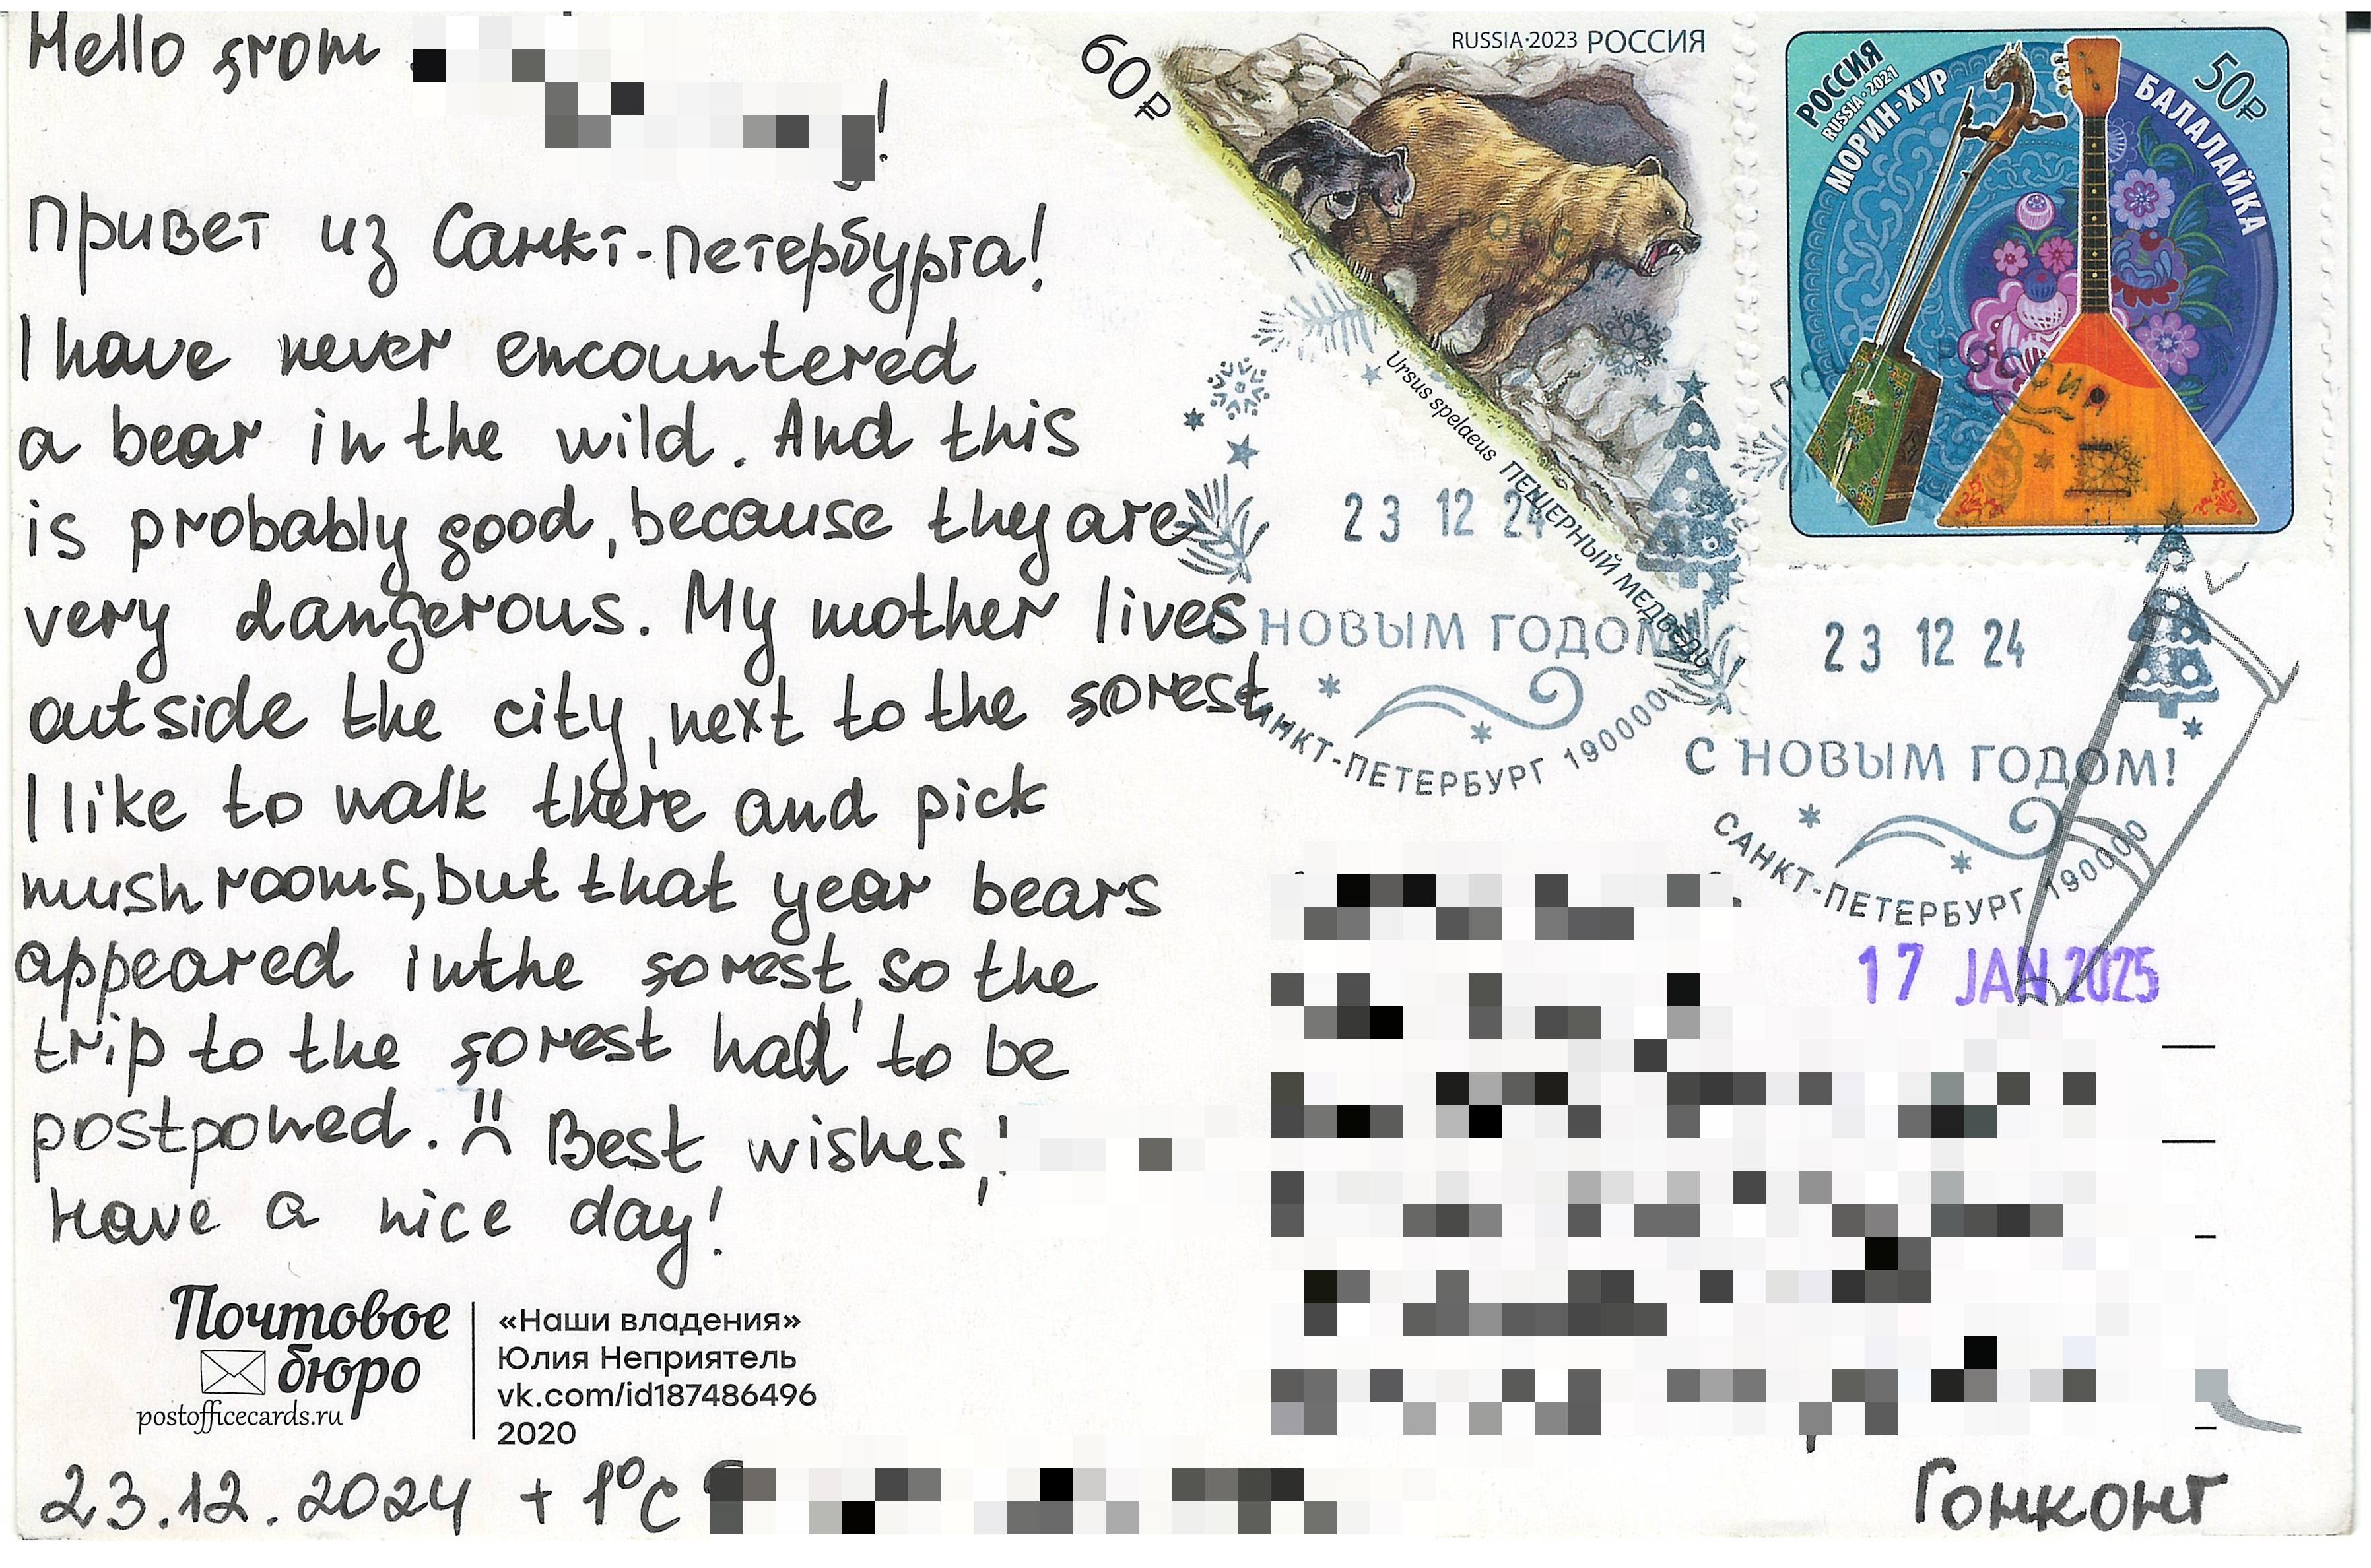 Hello from
!
Привет из Санкт-Петербурга!
I have never encountered
a bear in the wild. And this
is probably good, because they are
very dangerous. My mother lives
outside the city, next to the forest
I like to walk there and pick
mushrooms, but that year bears
appeared in the forest, so the
trip to the forest had to be
postponed. Best wishes,
Have a nice day!
Почтовое
бюро
postofficecards.ru
«Наши владения»
Юлия Неприятель
vk.com/id187486496
2020
23.12.2024 +1°C
60₽
RUSSIA·2023 РОССИЯ
Ursus spelaeus ПЕЩЕРНЫЙ МЕДВЕДЬ
РОССИЯ
RUSSIA·2021
МОРИН-ХУР
БАЛАЛАЙКА
50₽
23 12 24
С НОВЫМ ГОДОМ!
САНКТ-ПЕТЕРБУРГ 190000
23 12 24
С НОВЫМ ГОДОМ!
САНКТ-ПЕТЕРБУРГ 190000
17 JAN 2025
Гонконг